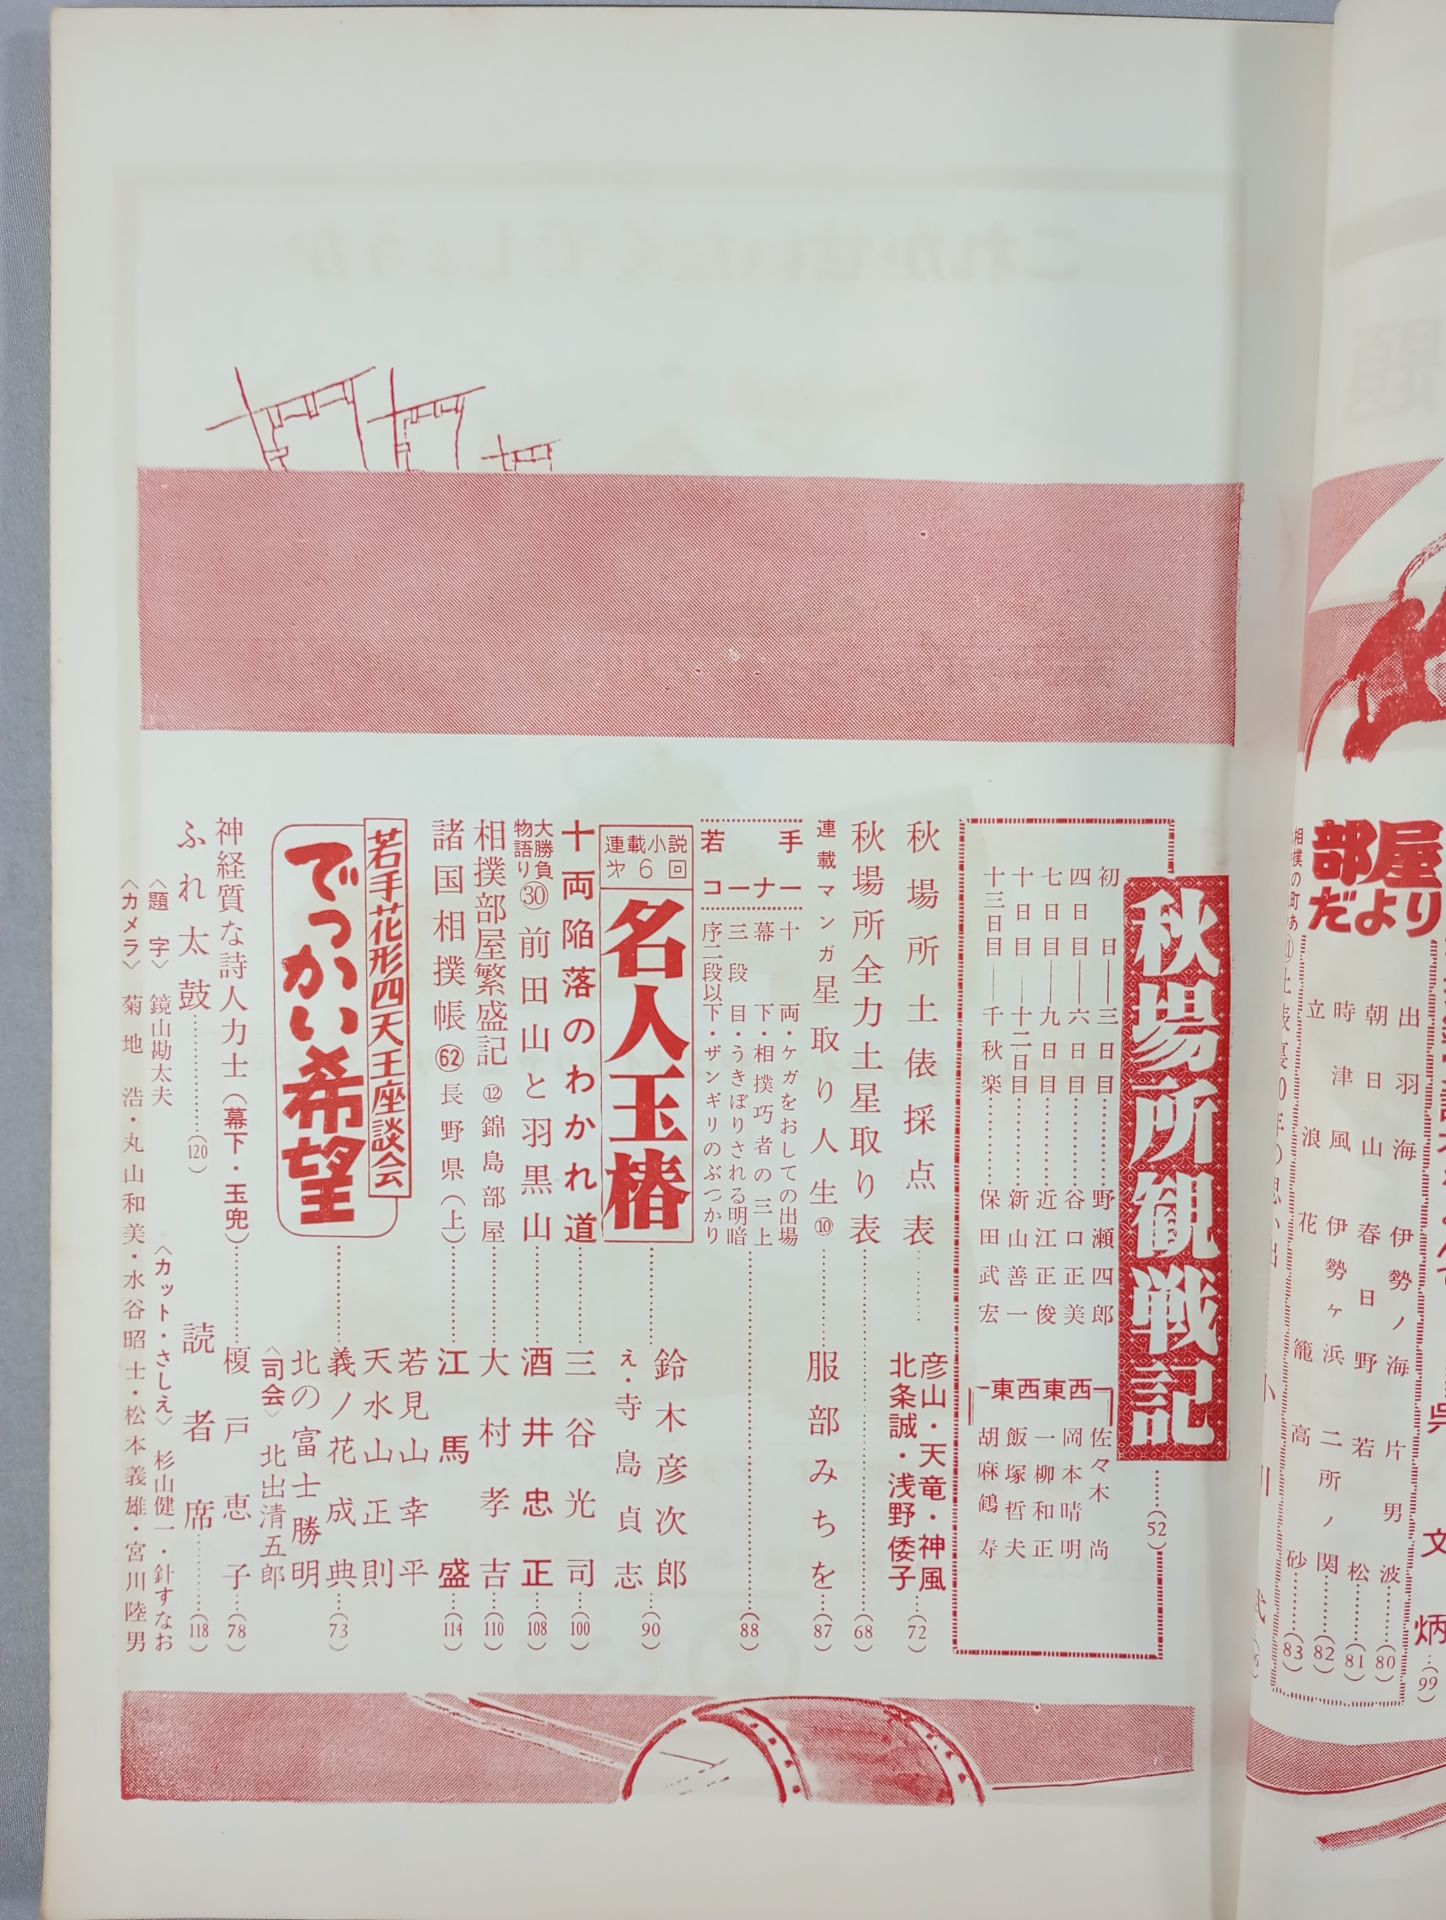 部屋だより
出羽海 伊勢ノ海 片男波……(80)
朝日山 春日野 若松……(81)
時津風 伊勢ヶ浜 二所ノ関……(82)
立浪 花籠 高砂……(83)
秋場所観戦記……(52)
初日―三日目……野瀬四郎
四日目―六日目……谷口正美
七日目―九日目……近江正俊
十日目―十二日目……新山善一
十三日目―千秋楽……保田武宏
西 佐々木尚
東 岡本晴明
西 一柳和正
東 飯塚哲夫
胡麻鶴寿
秋場所土俵採点表………
彦山・天竜・神風
北条誠・浅野倭子…(72)
秋場所全力士星取り表……(68)
連載マンガ 星取り人生⑩……服部みちを…(87)
若手コーナー
十両・ケガをおしての出場
幕下・相撲巧者の三上
三段目・うきぼりされる明暗
序二段以下・ザンギリのぶつかり
……(88)
連載小説 第6回
名人玉椿……鈴木彦次郎
え・寺島貞志…(90)
十両陥落のわかれ道……三谷光司…(100)
大勝負物語り㉚ 前田山と羽黒山……酒井忠正…(108)
相撲部屋繁盛記 ⑫錦島部屋……大村孝吉…(110)
諸国相撲帳 62 長野県(上)……江馬盛…(114)
若手花形四天王座談会
でっかい希望……
若見山幸平
天水山正則
義ノ花成典
北の富士勝明
〈司会〉北出清五郎
…(73)
神経質な詩人力士(幕下・玉兜)……榎戸恵子…(78)
ふれ太鼓……(120)
読者席……(118)
〈題字〉鏡山勘太夫
〈カット・さしえ〉杉山健一・針すなお
〈カメラ〉菊地浩・丸山和美・水谷昭士・松本義雄・宮川陸男